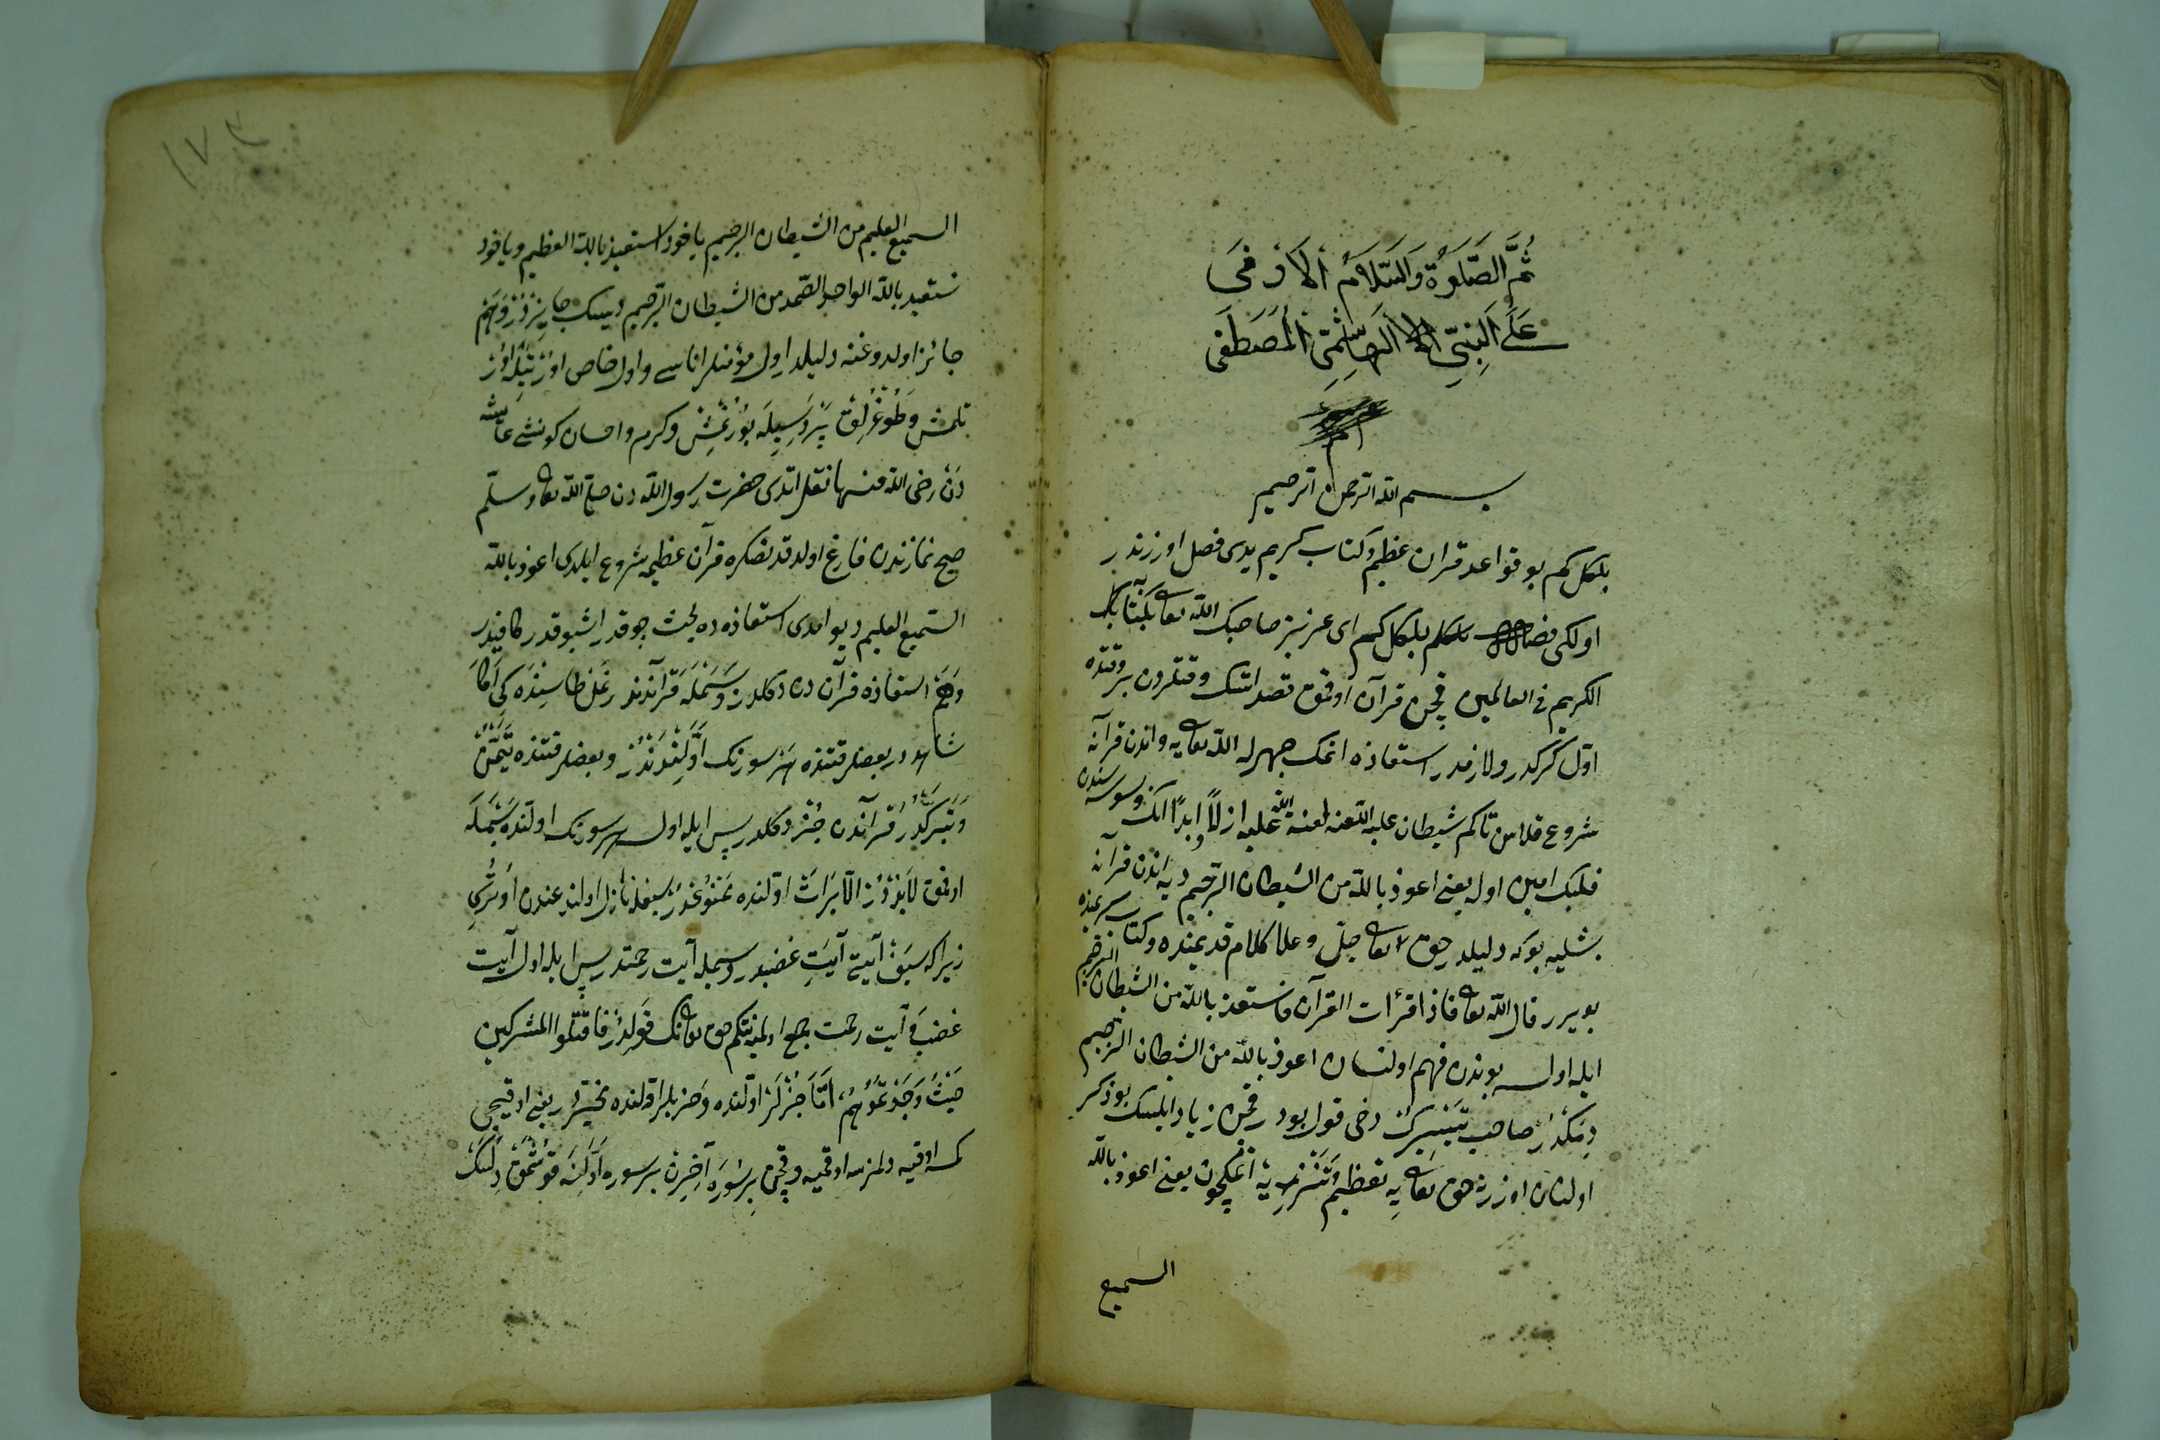 ثُمَّ الصَّلَوةُ وَالسَّلَامُ الاَوْفَى
عَلَى النَبِيِّ الهَاشِمِيّ المُصَطَفَى
بسم الله الرحمن الرحيم
بلكل كم بو قواعد قران عظيم وكتاب كريم يدى فصل اوزرندر
اولكى فصل بلكل كم اى عزيز صاحبك الله تعا بكتابك
الكريم فى العالمين قچن قرآن اوقمق قصد اتسك وقتلردن بر وقتده
اوّل كركدر ولازمدر استعاذه اتمك جهرله الله تعايه واندن قرآنه
شروع قلاسن تاكم شيطان عليه اللعنه لعنة الله عليه ازلاً وابداً انك وسوسه سندن
قلبك امين اول يعنى اعوذ بالله من الشيطان الرجيم ديه اندن قرآنه
بشليه بوكه دليلدر حق تعا جلّ وعلا كلام قديمنده وكتاب كريمنده
بويرر قال الله تعا فاذا قرأت القرآن فاستعذ بالله من الشيطان الرجيم
ايله اولسه بوندن فهم اولنسان اعوذ بالله من الشيطان الرجيم
دمكدر صاحب تيسيرك دخى قولى بودر قچن زياد ايلسك بو ذكر
اولنان اوزرنه حق تعايه تعظيم وتنزيه اتمكچون يعنى اعوذ بالله
السميع
١٧٤
السميع العليم من الشيطان الرجيم ياخود استعيذ بالله العظيم وياخود
نستعيد بالله الواحد الصّمد من الشيطان الرّجيم ديسك جايزدر وهم
جائز اولدوغنه دليلدر اول مؤمنلر اناسى واول خاص
وطوغرلق پرده سيله بورنمش وكرم واحسان كونشى عائشه
دن رضى الله عنها نقل اتدى حضرت رسول الله دن صلى الله تعا وسلّم
صبح نمازندن فارغ اولدقدنصكره قرآن عظيمه شروع ايلدى اعوذ بالله
السّميع العليم ديو امدى استعاذه ده بحث چوقدر اشبو قدر كافيدر
وهم استعاذه قرآن دن دكلدر وبسمله قرآندندر نمل طاسنده كى اكا
شاهددر بعضلر قتنده هر سورنك اوّلندندر وبعضلر قتنده تيمّن
وتبركدر قرآندن جز دكلدر پس ايله اولسه هر سورنك اولنده بسمله
اوقمق لابددر الّا برائت اوّلنده ممنوعدر سيفله نازل اولندوغندن اوترى
زيرا كه سيف آيتى آيت غضبدر وبسمله آيت رحمتدر پس ايله اول آيت
غضب وآيت رحمت جمع اولمز نتكم حق تعانك قولدر فاقتلوا المشركين
حيث وجدتموهم امّا جزلر اوّلنده وحزبلر اوّلنده مخيّردر يعنى اوقيجى
كمسه اوقيه دلرسه اوقميه وقچن بر سوره آخرين بر سوره اوّلنه قوشمق دلسك